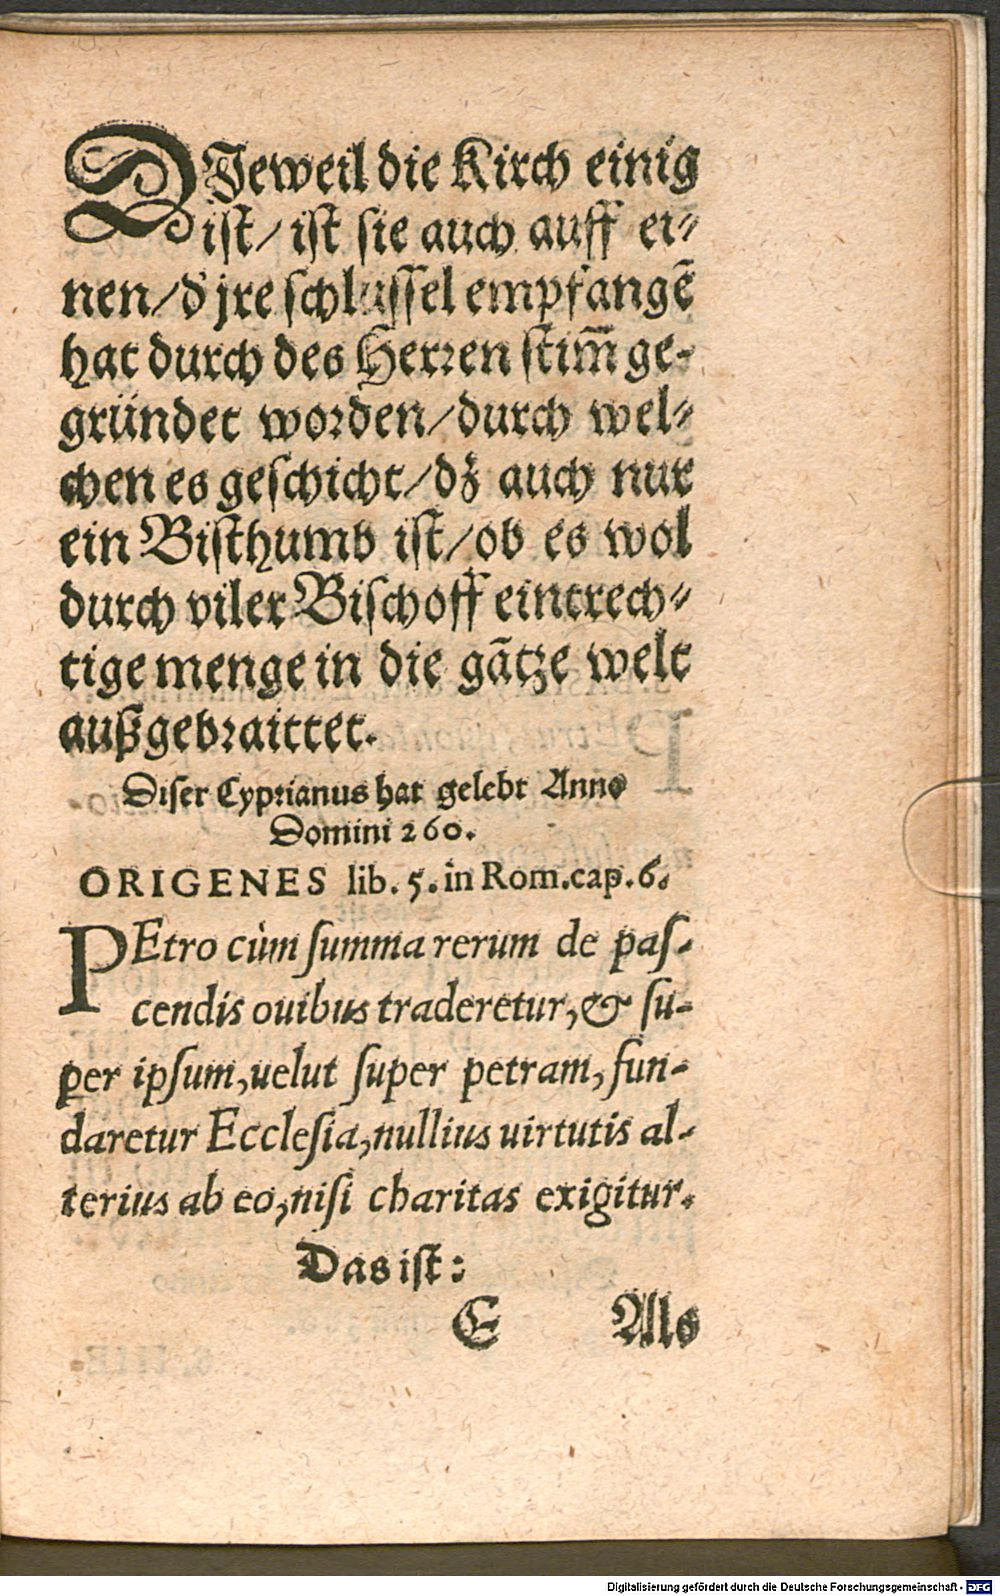 DJeweil die Kirch einig
ist/ ist sie auch auff ei⸗
nen/ d' jre schlussel empfangē
hat durch des Herren stim̄ ge⸗
gründet worden/ durch wel⸗
chen es geschicht/ dz auch nur
ein Bisthumb ist/ ob es wol
durch viler Bischoff eintrech⸗
tige menge in die gātze welt
außgebraittet.
Diser Cyprianus hat gelebt Anno
Domini 260.
ORIGENES lib. 5. in Rom.cap. 6.
PEtro cùm summa rerum de pas-
cendis ouibus traderetur, & su-
per ipsum, uelut super petram, fun-
daretur Ecclesia, nullius uirtutis al-
terius ab eo, nisi charitas exigitur.
Das ist:
E Als
Digitalisierung gefördert durch die Deutsche Forschungsgemeinschaft - DFG